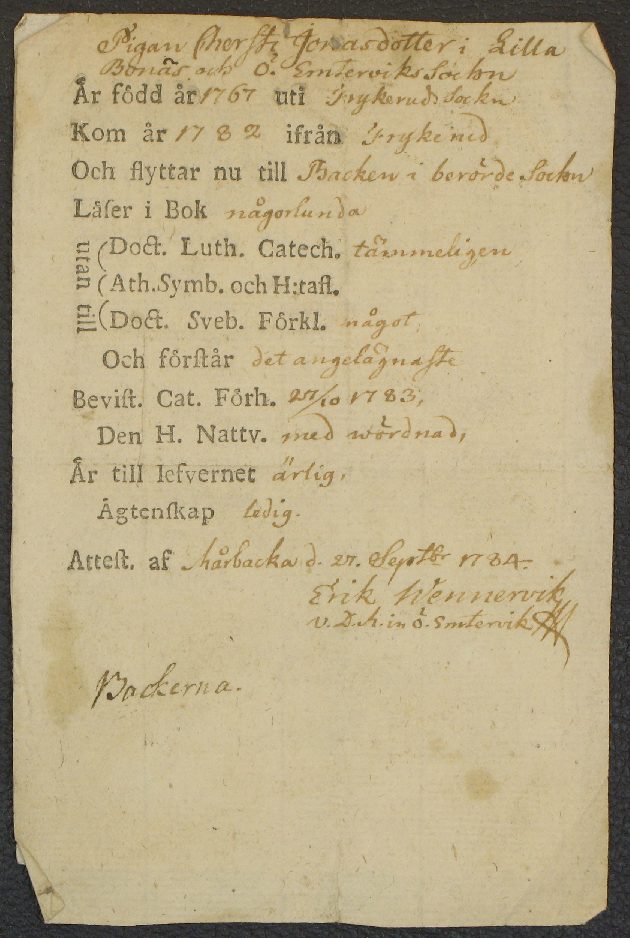 Pigan Cherste Jonasdotter i Lilla
Bonäs och Ö. Emterviks Sochn
Är född år 1767 uti Frykeruds Sockn
Kom år 1782 ifrån Frykerud
Och flyttar nu till Backen i berörde Sochn
Läſer i Bok någorlunda
utan till (Doct. Luth. Catech. tämmeligen
(Ath.Symb. och H:taſl.
(Doct. Sveb. Förkl. något,
Och förſtår det angelägnaſte
Beviſt. Cat. Förh. 27/10 1783,
Den H. Nattv. med wördnad,
Är till lefvernet ärlig,
Ägtenſkap ledig.
Atteſt. af Mårbacka d. 27. Septbr 1784.
Erik Wennervik
v. D. M. in Ö. Emtervik
Backerna.